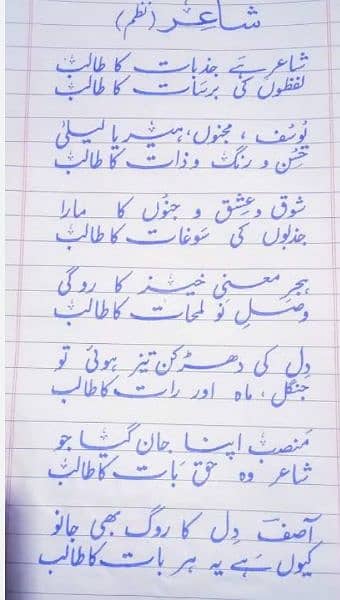 شاعر (نظم)
شاعر ہے جذبات کا طالب
لفظوں کی برسات کا طالب
یوسف، مجنوں، ہیر یا لیلیٰ
حسن و رنگ و ذات کا طالب
شوق و عشق و جنوں کا مارا
جذبوں کی سوغات کا طالب
ہجر معنی خیز کا روگی
وصلِ نو لمحات کا طالب
دل کی دھڑکن تیز ہوئی تو
جنگل، ماہ اور رات کا طالب
منصب اپنا جان گیا جو
شاعر وہ حق بات کا طالب
آصف دل کا روگ بھی جانو
کیوں ہے یہ ہر بات کا طالب